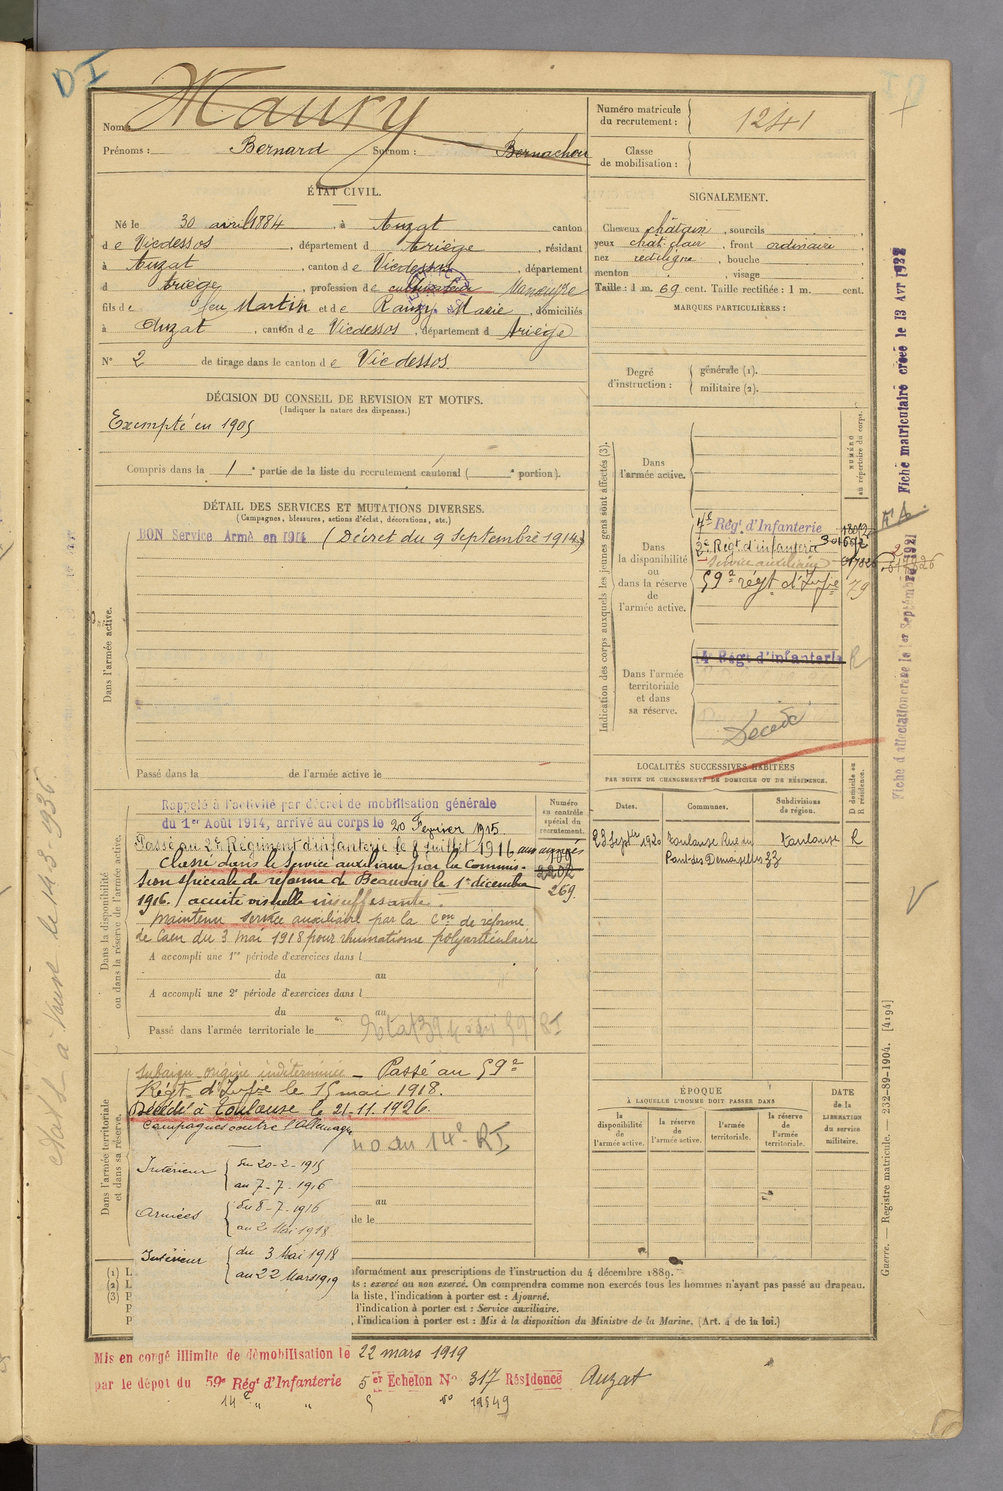 DI
Nom : Maury
Prénoms : Bernard Surnom : Bernachou
Numéro matricule du recrutement : 1241
Classe de mobilisation :
ÉTAT CIVIL.
Né le 30 avril 1884, à Auzat canton
de Vicdessos, département d Ariège, résidant
à Auzat, canton de Vicdessos, département
d Ariège, profession de cultivateur Manœuvre
fils de feu Martin et de Rauzy Marie, domiciliés
à Auzat, canton de Vicdessos, département d Ariège
N° 2 de tirage dans le canton de Vicdessos.
SIGNALEMENT.
Cheveux châtain, sourcils
yeux chât. clair, front ordinaire
nez rectiligne, bouche
menton , visage
Taille : 1 m. 69 cent. Taille rectifiée : 1 m. cent.
MARQUES PARTICULIÈRES :
Degré d'instruction : générale (1).
militaire (2).
DÉCISION DU CONSEIL DE REVISION ET MOTIFS.
(Indiquer la nature des dispenses.)
Exempté en 1905
Compris dans la 1e partie de la liste du recrutement cantonal ( e portion).
DÉTAIL DES SERVICES ET MUTATIONS DIVERSES.
(Campagnes, blessures, actions d'éclat, décorations, etc.)
BON Service Armé en 1914 (Décret du 9 Septembre 1914)
Dans l'armée active.
Passé dans la de l'armée active le
Indication des corps auxquels les jeunes gens sont affectés (3).
NUMÉRO au répertoire du corps.
Dans l'armée active.
Dans la disponibilité ou dans la réserve de l'armée active.
4e Régt d'Infanterie
2e Régt d'infanterie
Service auxiliaire
59e régt d'Infie 79
Dans l'armée territoriale et dans sa réserve.
14e Régt d'Infanterie R
Décédé
Fiche matriculaire créée le 13 Avr 1922
Fiche d'affectation créée le 1er Septembre 1921
LOCALITÉS SUCCESSIVES HABITÉES
PAR SUITE DE CHANGEMENTS DE DOMICILE OU DE RÉSIDENCE.
Dates. Communes. Subdivisions de région. D domicile ou R résidence.
23 Septbre 1920 Toulouse Rue du Toulouse R
Pont des Demoiselles 33
Dans la disponibilité ou dans la réserve de l'armée active.
Numéro au contrôle spécial du recrutement.
Rappelé à l'activité par décret de mobilisation générale
du 1er Août 1914, arrivé au corps le 20 Fevrier 1915.
Passé au 2e Régiment d'infanterie le 8 juillet 1916 aux armées
Classé dans le Service auxiliaire par la Commis-
sion spéciale de réforme de Beauvais le 1er décembre
1916. / acuité visuelle insuffisante.
269.
Maintenu service auxiliaire par la Con de réforme
de Caen du 3 mai 1918 pour rhumatisme polyarticulaire
A accompli une 1re période d'exercices dans l
du au
A accompli une 2e période d'exercices dans l
du au
Passé dans l'armée territoriale le
Dans l'armée territoriale et dans sa réserve.
subaigu origine indéterminée – Passé au 59e
Régt d'Infie le 15 mai 1918.
Décédé à Toulouse le 21-11-1926.
Campagnes contre l'Allemagne
Intérieur du 20-2-1915
au 7-7-1916
Armées du 8-7-1916
au 2 Mai 1918
Intérieur du 3 Mai 1918
au 22 Mars 1919
no du 14e RI
au
le
ÉPOQUE
À LAQUELLE L'HOMME DOIT PASSER DANS
la disponibilité de l'armée active.
la réserve de l'armée active.
l'armée territoriale.
la réserve de l'armée territoriale.
DATE de la LIBÉRATION du service militaire.
(1) L nformément aux prescriptions de l'instruction du 4 décembre 1889.
(2) L ts : exercé ou non exercé. On comprendra comme non exercés tous les hommes n'ayant pas passé au drapeau.
(3) P la liste, l'indication à porter est : Ajourné.
P l'indication à porter est : Service auxiliaire.
P , l'indication à porter est : Mis à la disposition du Ministre de la Marine. (Art. 4 de la loi.)
Guerre. — Registre matricule. — 232-89-1904. [4194]
Mis en congé illimité de démobilisation le 22 mars 1919
par le dépôt du 59e Régt d'Infanterie 5er Echelon No 317 Résidence Auzat
14e " " 5 No 19549